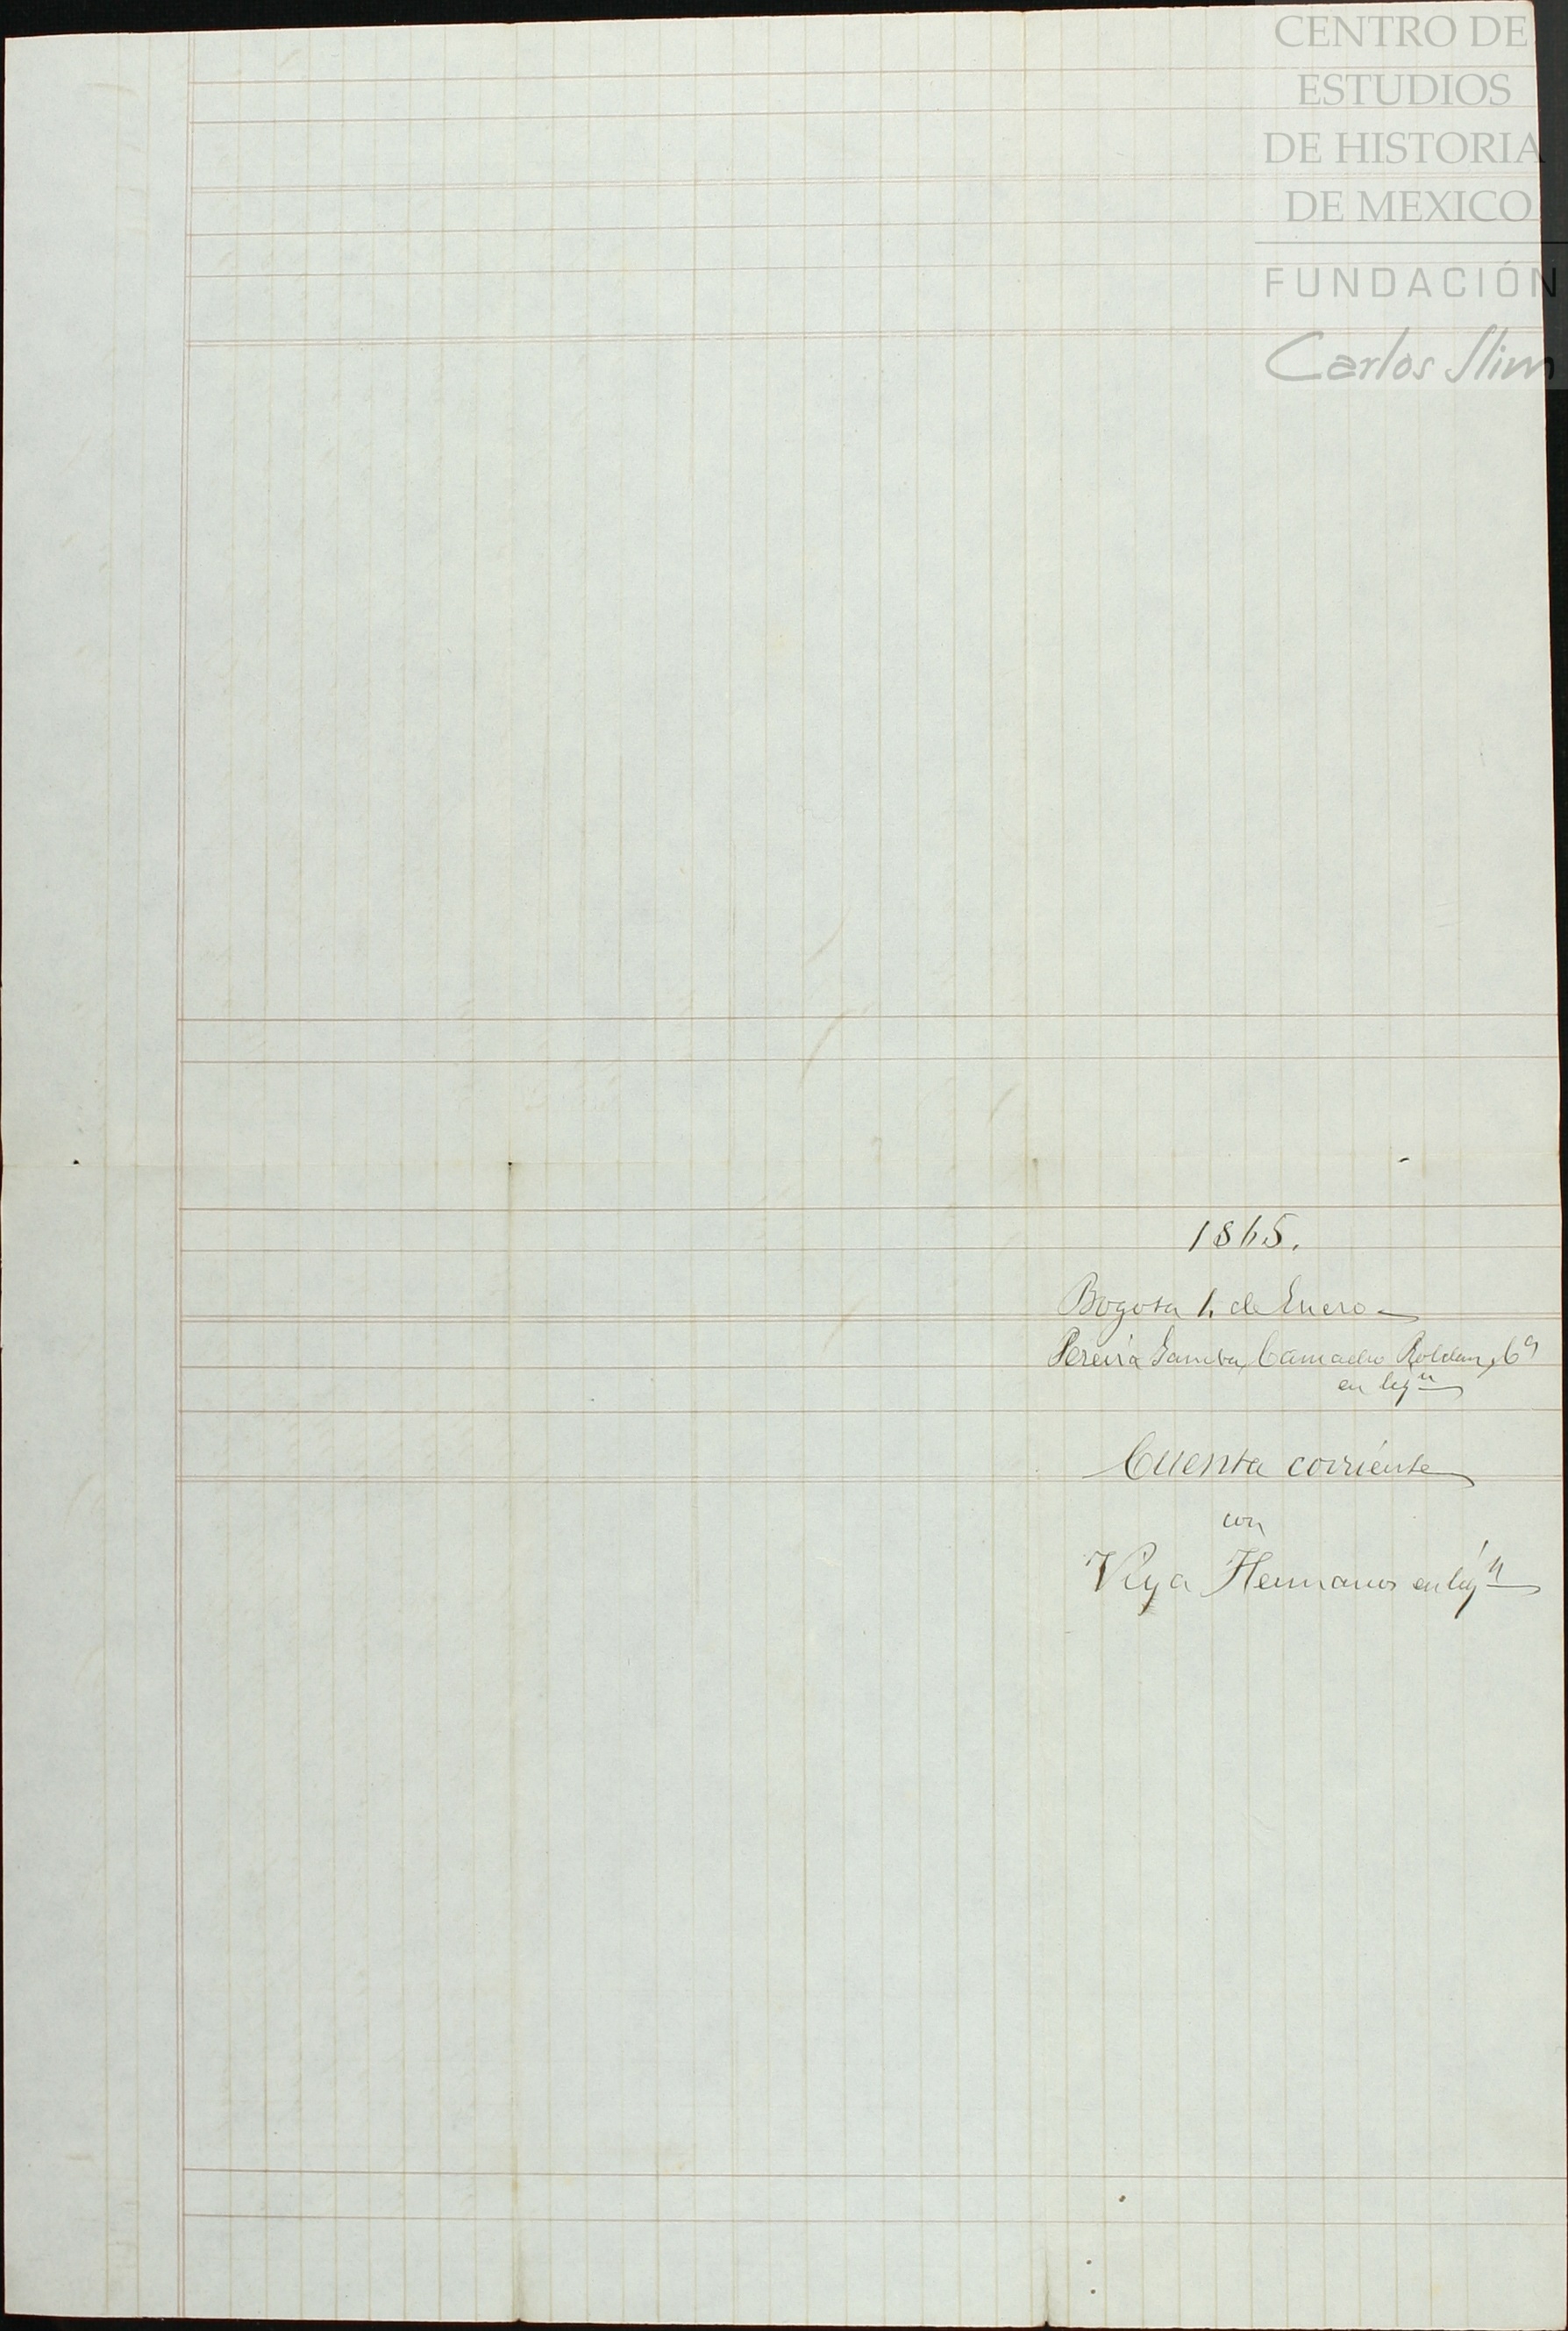 CENTRO DE
ESTUDIOS
DE HISTORIA
DE MEXICO
FUNDACIÓN
Carlos Slim
1865.
Bogota 1. de Enero
Pereira Gamba, Camacho Roldan, Cª
en liqⁿ
Cuenta corriente
con
Vega Hermanos en liqⁿ